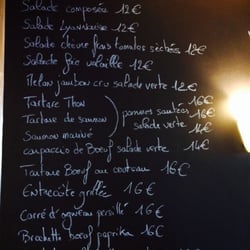 Salade composée 12€
Salade Lyonnaise 12€
Salade chèvre frais tomates séchées 12€
Salade foie volaille 12€
Melon jambon cru salade verte 12€
Tartare Thon 16€
Tartare de saumon pommes sautées 16€
Saumon mariné salade verte 14€
carpaccio de Boeuf salade verte 14€
Tartare Boeuf au couteau 16€
Entrecôte grillée 16€
Carré d'agneau persillé 16€
Brochette boeuf paprika 16€